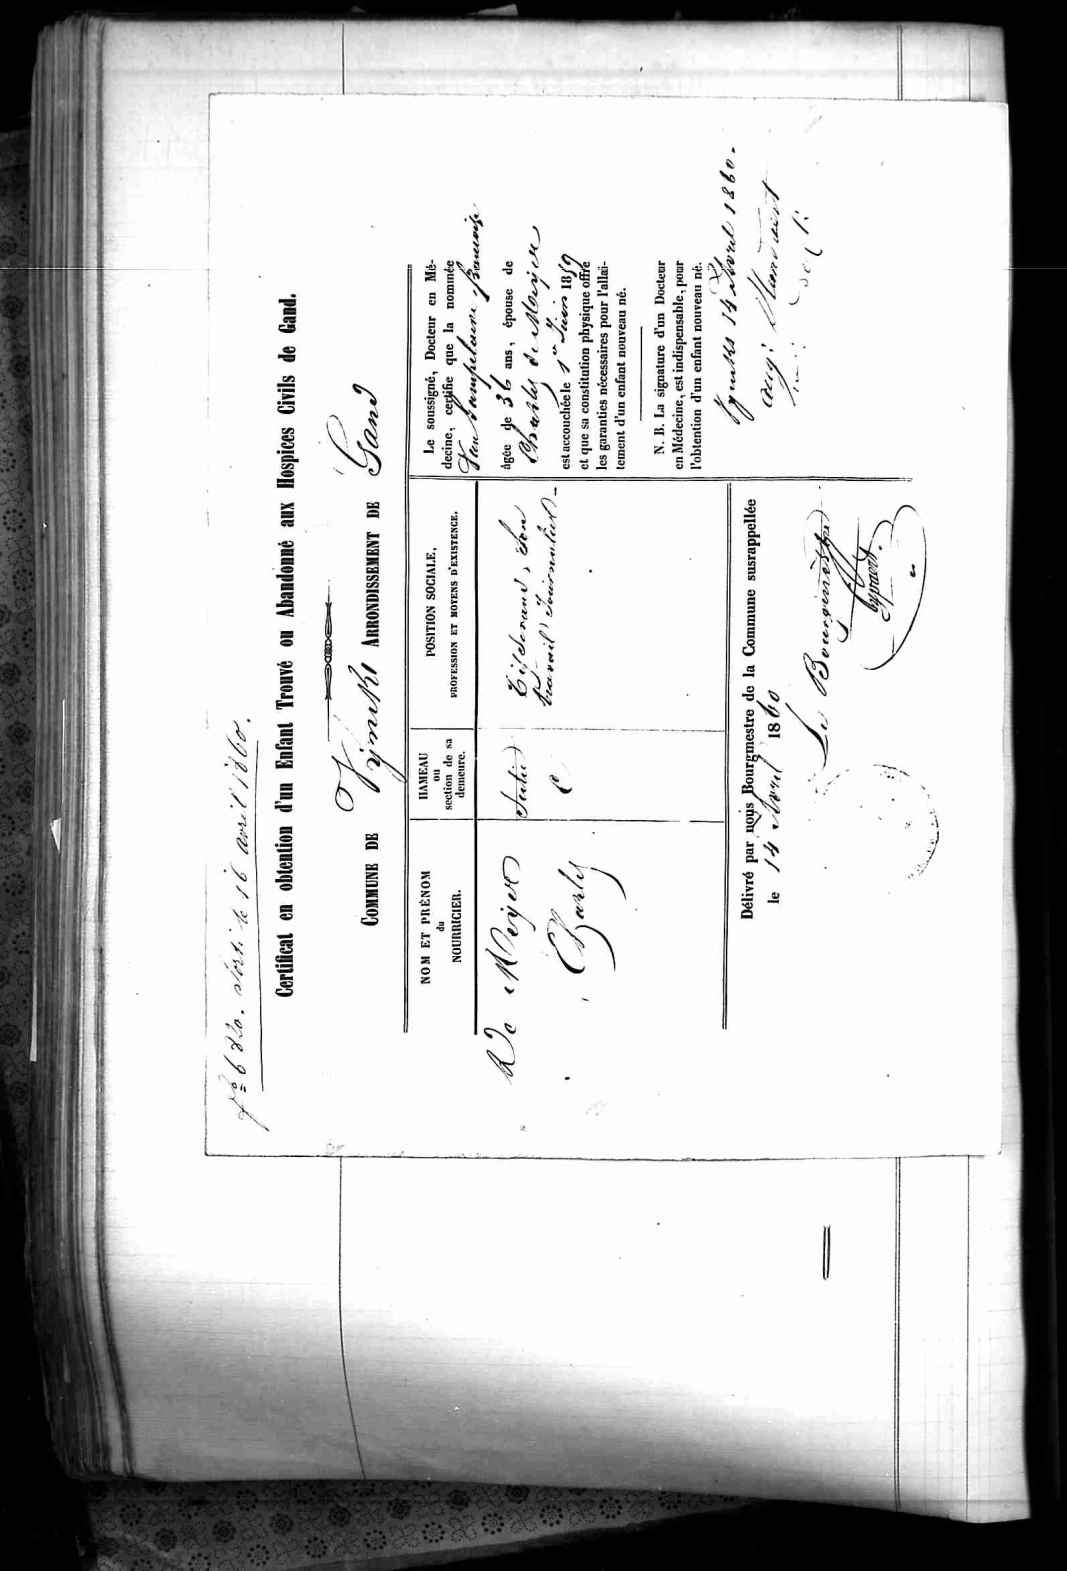 fº 680. sorti le 16 avril 1860.
Certificat en obtention d'un Enfant Trouvé ou Abandonné aux Hospices Civils de Gand.
COMMUNE DE Vynckt ARRONDISSEMENT DE Gand
NOM ET PRÉNOM
du
NOURRICIER.
HAMEAU
ou
section de sa
demeure.
POSITION SOCIALE,
PROFESSION ET MOYENS D'EXISTENCE.
De Meyer
Charles
C
Tisserand, Son
travail Journalier
Délivré par nous Bourgmestre de la Commune susrappellée
le 14 Avril 1860
Le Bourgmestre
Le soussigné, Docteur en Mé-
decine, certifie que la nommée
Françoise
âgée de 36 ans, épouse de
Charles de Meyer
est accouchée le 1er Juin 1859
et que sa constitution physique offre
les garanties nécessaires pour l'allai-
tement d'un enfant nouveau né.
N. B. La signature d'un Docteur
en Médecine, est indispensable, pour
l'obtention d'un enfant nouveau né.
Vynckt 14 Avril 1860.